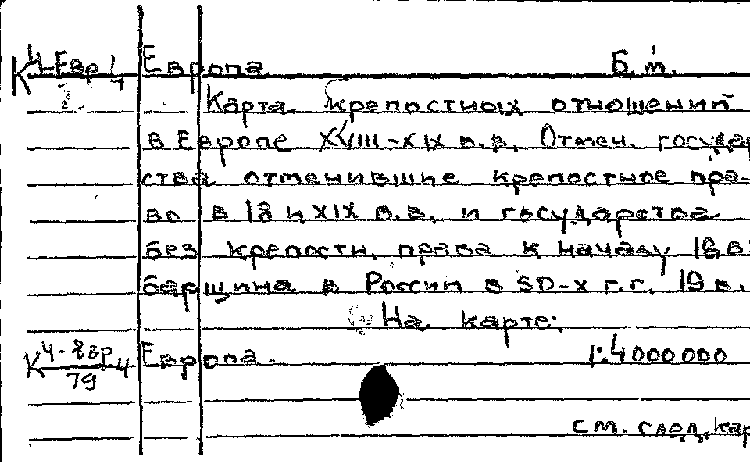 К 4-Евр 4 Европа Б.м.
Карта крепостных отношений
в Европе XVIII-XIX в.в. Отмен. государ
ства отменившие крепостное пра-
во в 18 и XIX в.в. и государства
без крепостн. права к началу 18 в.
барщина в России в 50-х г.г. 19 в.
На карте:
К 4-Евр 4 Европа. 1:4000000
79
см. след. кар